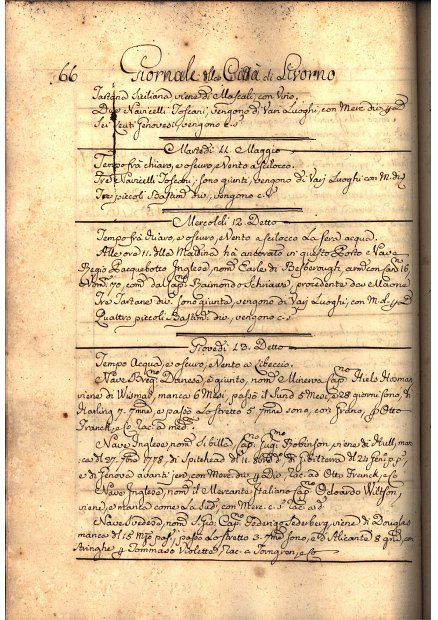 66 Giornale della Città di Livorno
Tartana Siciliana viene di Mascali, con Vino,
Due Navicelli Toscani, vengono di Vari Luoghi, con Merc. div.
Sei Leuti Genovesi, vengono c.s.
Martedì 11 Maggio
Tempo frà chiaro, e oscuro, e Vento a Scilocco.
Tre Navicelli Toscani, sono giunti, vengono di Varj Luoghi con M. d.
Tre piccoli Bastim.ti div., vengono c.s.
Mercoldì 12 Detto
Tempo frà chiaro, e oscuro, e Vento a Scilocco La Sera acqua.
Alle ore 11. della Mattina hà ancorato in questo Porto e Nave
Regio Pacquebotto Inglese, nom. Carle di Besborough, arm. con Can. 16,
e Uom. 70, com. dal Cap. Raimondo Schriave, procedente da Maone
Tre Tartane div. sono giunte, vengono di Varj Luoghi, con M. d.
Quattro piccoli Bastim.ti div., vengono c.s.
Giovedì 13. Detto
Tempo Acqua, e oscuro, e Vento a Libeccio.
Nave Breg.no Danese, è giunto, nom. Minerva Cap.no Niels
viene di Wismar, manca 6 Mesi, passò il Sund 5 Mesi, e 28 giorni sono, di
Harling 7. m.ne, e passò Lo Stretto 5 m.ne sono, con Grano, p. Otto
Franck, e Co. rac. a med.
Nave Inglese, nom. Sibilla, Cap.no Luigi Robinson, viene di Hull, manca
dì 27. 1778, di Spitehead dì 11. di Gibilterra dì 21
e di Genova avanti jeri con Merc. div. rac. ad Otto Franck, e Co
Nave Inglese, nom. il Mercante Italiano Cap.no Odoardo Wilson,
viene, e manca come La Sud. con Merc. c.s. rac. a d.
Nave Svedese, nom. S. Gio. Cap.no Federigo Sederberg, viene di Douglas
manca dì 15 Mzo pas. passò Lo Stretto 3. m.ne sono, e d'Alicante 8 gni, con
Aringhe Tommaso Violette rac. a Torngren, e Co